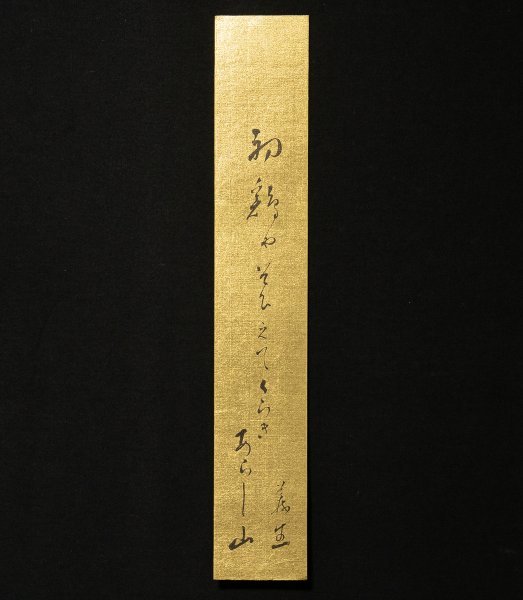 初鶏やそひえてくらき
あらし山